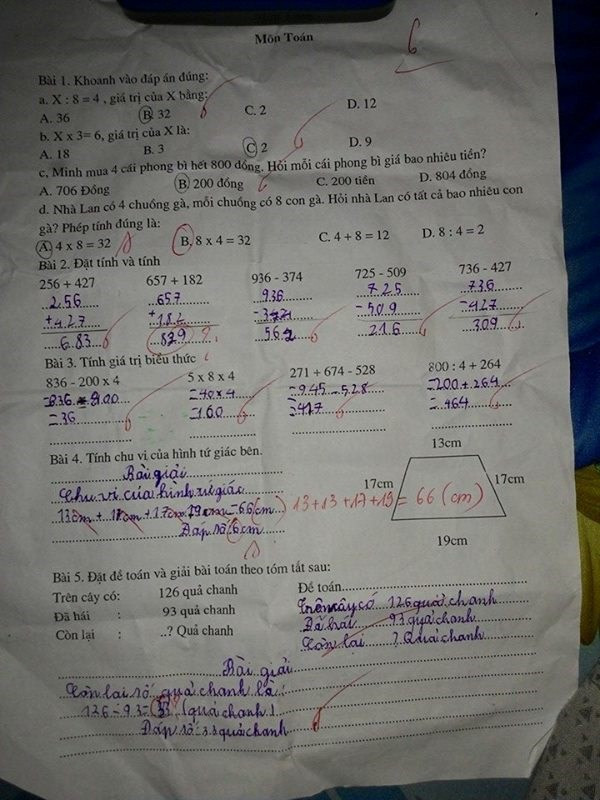 Môn Toán
6
Bài 1. Khoanh vào đáp án đúng:
a. X : 8 = 4 , giá trị của X bằng:
A. 36 B. 32 C. 2 D. 12
b. X x 3= 6, giá trị của X là:
A. 18 B. 3 C. 2 D. 9
c, Minh mua 4 cái phong bì hết 800 đồng. Hỏi mỗi cái phong bì giá bao nhiêu tiền?
A. 706 Đồng B. 200 đồng C. 200 tiền D. 804 đồng
d. Nhà Lan có 4 chuồng gà, mỗi chuồng có 8 con gà. Hỏi nhà Lan có tất cả bao nhiêu con
gà? Phép tính đúng là:
A. 4 x 8 = 32 B. 8 x 4 = 32 C. 4 + 8 = 12 D. 8 : 4 = 2
Bài 2. Đặt tính và tính
256 + 427 657 + 182 936 - 374 725 - 509 736 - 427
256 657 936 725 736
+427 +182 -374 -509 -427
683 839 562 216 309
Bài 3. Tính giá trị biểu thức
836 - 200 x 4 5 x 8 x 4 271 + 674 - 528 800 : 4 + 264
=836 - 800 =40 x 4 =945 - 528 =200 + 264
=36 =160 =417 =464
Bài 4. Tính chu vi của hình tứ giác bên.
13cm
Bài giải
17cm 17cm
Chu vi của hình tứ giác
13cm + 17cm + 17cm 19cm = 66(cm) 13+13+17+19 = 66 (cm)
Đáp số 6cm
19cm
Bài 5. Đặt đề toán và giải bài toán theo tóm tắt sau:
Trên cây có: 126 quả chanh
Đã hái : 93 quả chanh
Còn lại : ..? Quả chanh
Đề toán
Trên cây có 126 quả chanh
Đã hái 93 quả chanh
Còn lại ? Quả chanh
Bài giải
Còn lại số quả chanh là:
126 - 93 = 33 (quả chanh)
Đáp số: 33 quả chanh